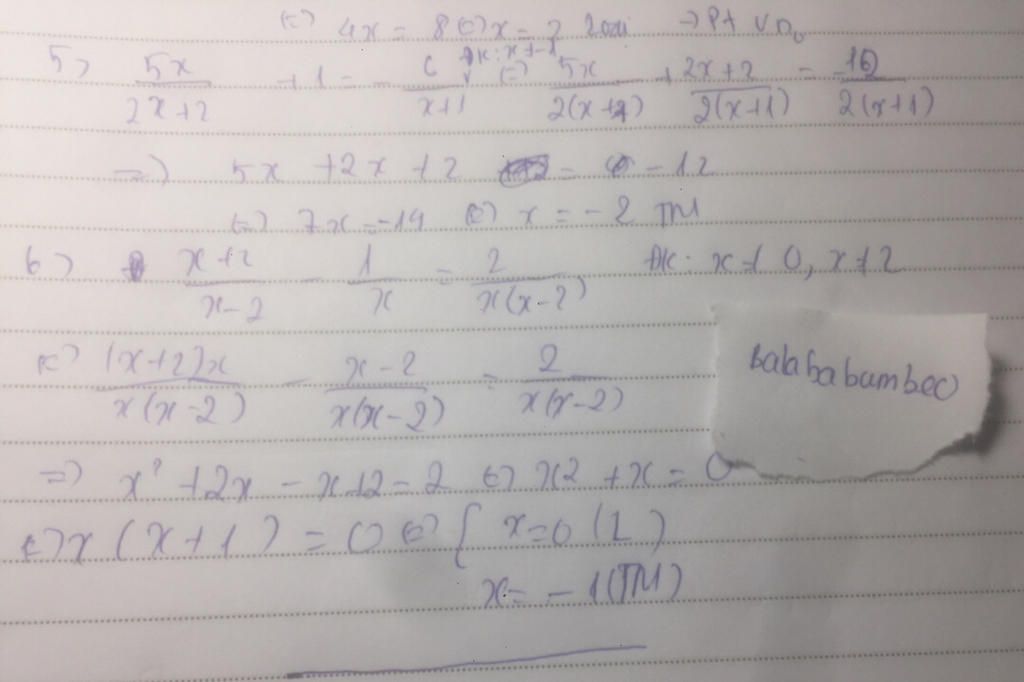 <=> 4x = 8 <=> x = 2 loại → PT VNo
5) 5x/(2x+2) + 1 = - 6/(x+1) ĐK: x ≠ -1 <=> 5x/2(x+1) + (2x+2)/2(x+1) = -12/2(x+1)
=> 5x + 2x + 2 = -12
<=> 7x = -14 <=> x = -2 TM
6) (x+2)/(x-2) - 1/x = 2/x(x-2) ĐK: x ≠ 0, x ≠ 2
<=> (x+2)x/x(x-2) - (x-2)/x(x-2) = 2/x(x-2)
balababumbeo
=> x² + 2x - x + 2 = 2 <=> x2 + x = 0
<=> x(x+1) = 0 <=> { x=0 (L)
x = -1 (TM)